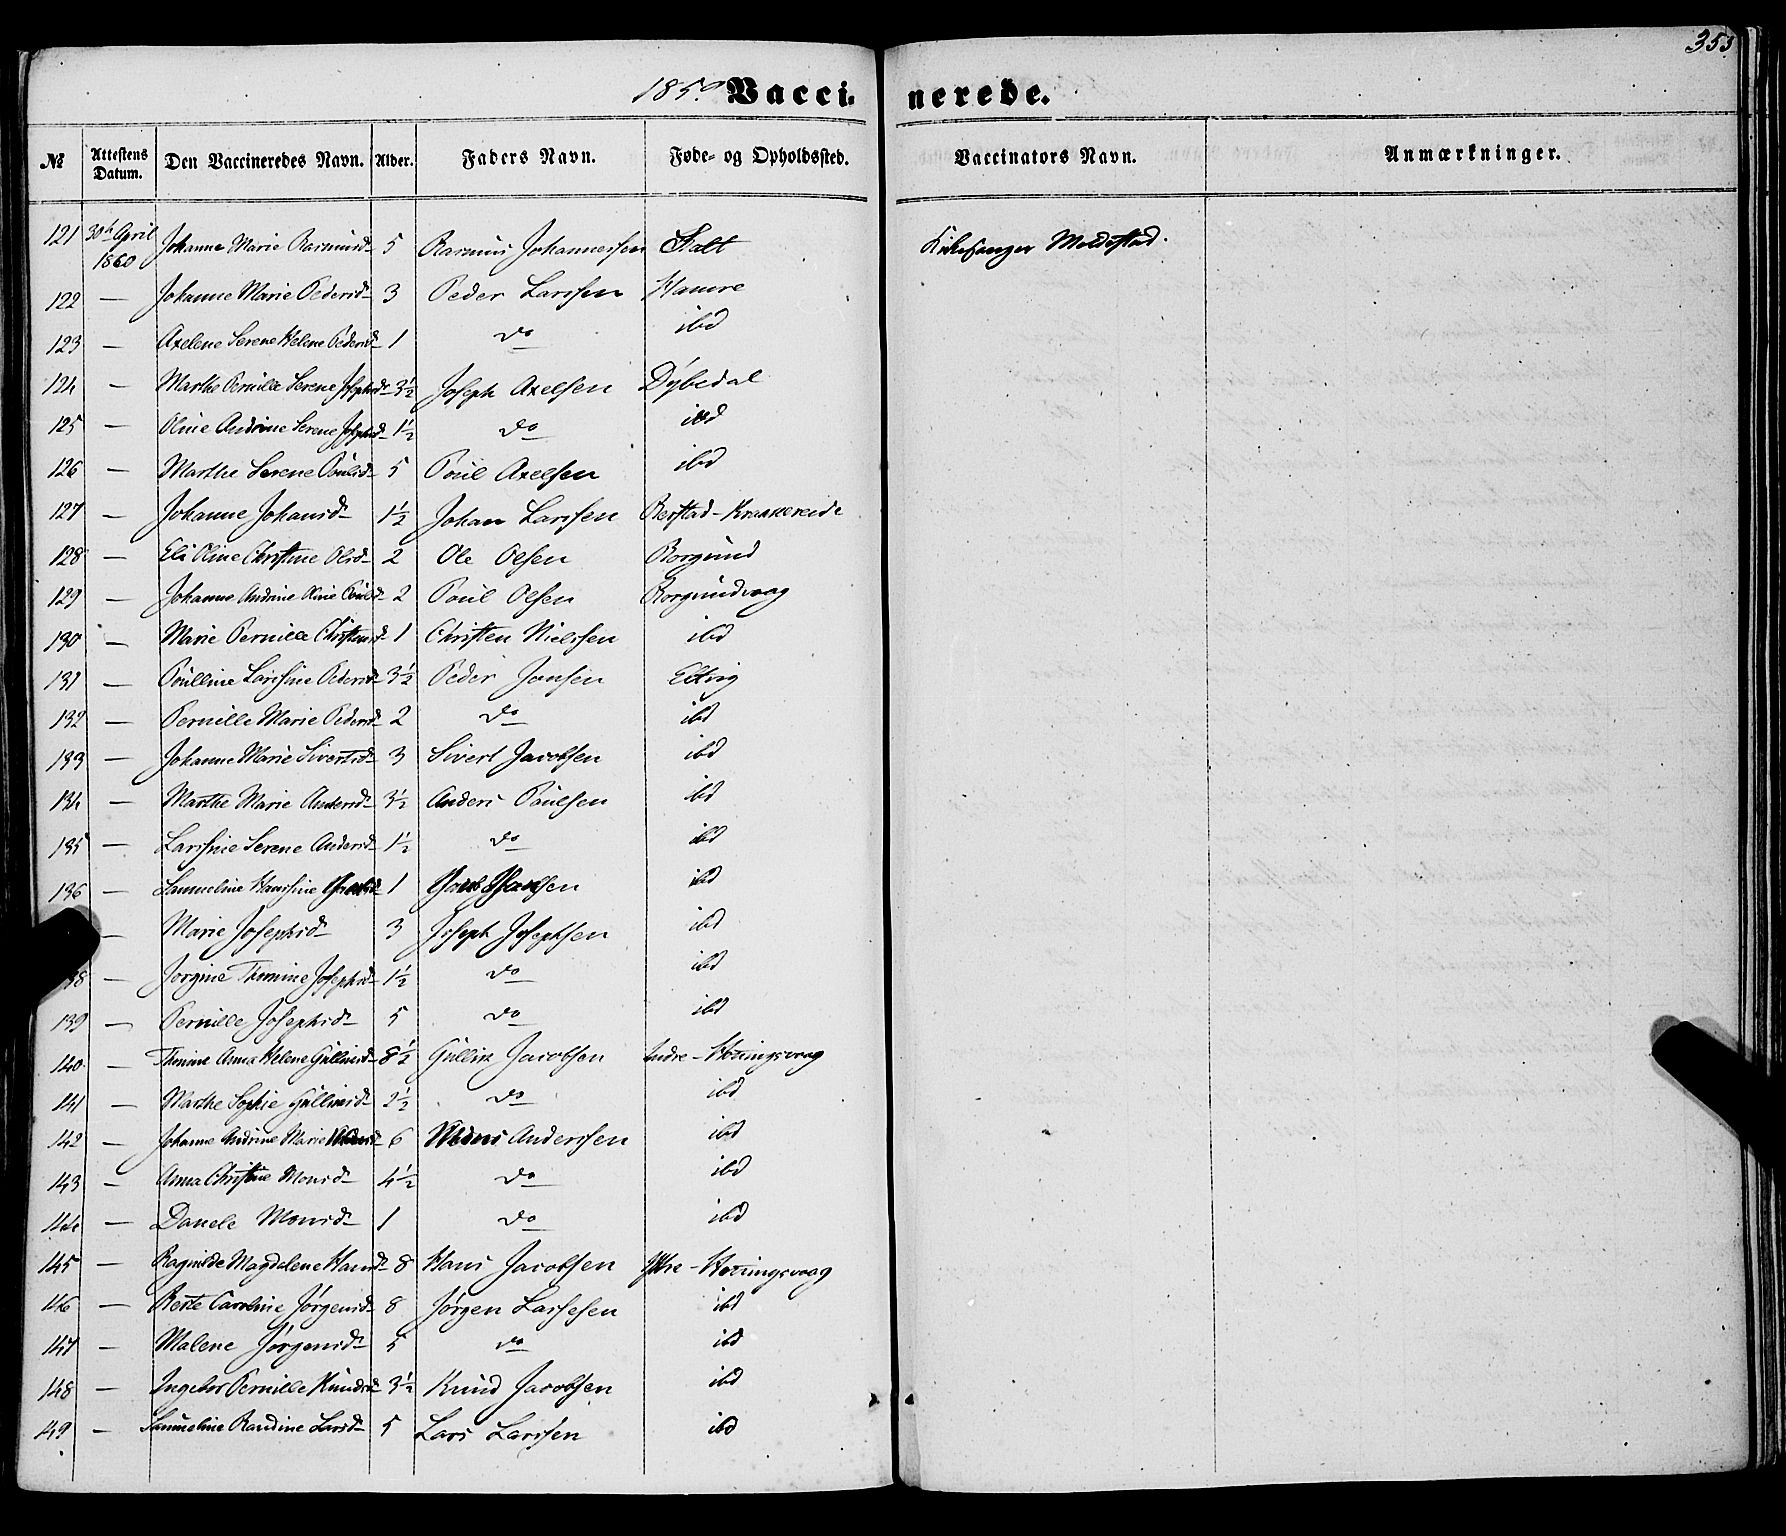 353.
1859 Vacci- nerede.
№ Attestens Datum. Den Vaccineredes Navn. Alder. Faders Navn. Føde- og Opholdssted. Vaccinators Navn. Anmærkninger.
121 30th April 1860 Johanne Marie Rasmusdr 5 Rasmus Johannessen Stalt Kirkesanger Moldestad.
122 — Johanne Marie Pedersdr 3 Peder Larssen Hamre
123 — Axelene Serene Helene Pedersdr 1 do ibd
124 — Marthe Pernille Serene Josephsdr 3½ Joseph Axelsen Dybedal
125 — Oline Andrine Serene Josephsdr 1½ do ibd
126 — Marthe Serene Poulsdr 5 Poul Axelsen ibd
127 — Johanne Johansdr 1½ Johan Larssen Berstad-
128 — Eli Oline Christine Olsdr 2 Ole Olsen Borgund
129 — Johanne Andrine Oline Poulsdr 2 Poul Olsen Borgundvaag
130 — Marie Pernille Christensdr 1 Christen Nielssen ibd
131 — Poulline Larssine Pedersdr 3½ Peder Jansen
132 — Pernille Marie Pedersdr 2 do ibd
133 — Johanne Marie Sivertsdr 3 Sivert Jacobsen ibd
134 — Marthe Marie Andersdr 3½ Anders Poulsen ibd
135 — Larssine Serene Andersdr 1½ do ibd
136 — Samueline Hanssine 1 ibd
— Marie Josephsdr 3 Joseph Josephsen ibd
38 — Jørgine Thomine Josephsdr 1½ do ibd
139 — Pernille Josephsdr 5 do ibd
140 — Thomine Anna Helene Gullicsdr 8½ Gullik Jacobsen Indre-Honningsvaag
141 — Marthe Sophie Gullicsdr 2½ do ibd
142 — Johanne Andrine Marie Monsdr 6 Mons Anderssen ibd
143 — Anna Christine Monsdr 4½ do ibd
144 — Danele Monsdr 1 do ibd
145 — Ragnilde Magdalene Hansdr 8 Hans Jacobsen Ytre-Honningsvaag
146 — Berte Caroline Jørgensdr 8 Jørgen Larssen ibd
147 — Malene Jørgensdr 5 do ibd
148 — Ingebor Pernille Knudsdr 3½ Knud Jacobsen ibd
149 — Samueline Randine Larsdr 5 Lars Larssen ibd